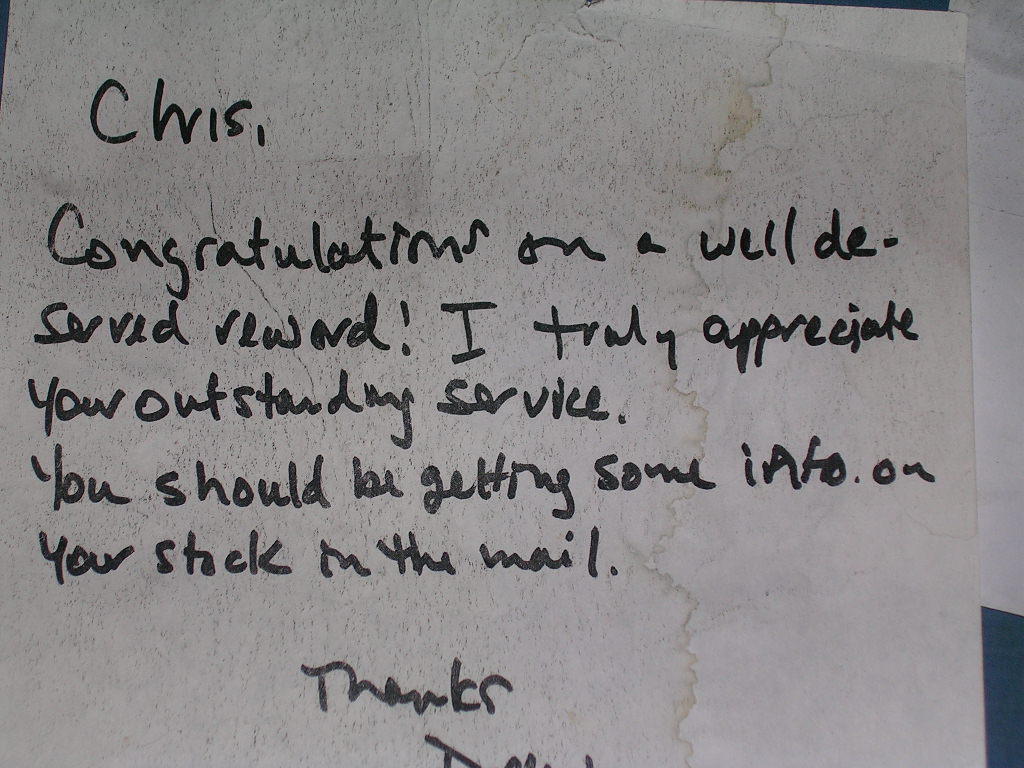 Chris,
Congratulations on a well de-
served reward! I truly appreciate
your outstanding service.
You should be getting some info. on
your stock in the mail.
Thanks